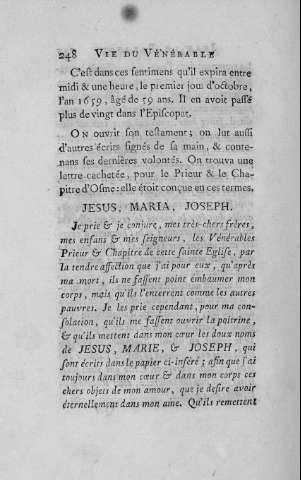 248 VIE DU VÉNÉRABLE
C'est dans ces sentimens qu'il expira entre
midi & une heure, le premier jour d'octobre,
l'an 1659, âgé de 59 ans. Il en avoit passé
plus de vingt dans l'Episcopat.
ON ouvrit son testament; on lut aussi
d'autres écrits signés de sa main, & conte-
nans ses dernières volontés. On trouva une
lettre cachetée, pour le Prieur & le Cha-
pitre d'Osme: elle étoit conçue en ces termes.
JESUS, MARIA, JOSEPH.
Je prie & je conjure, mes très-chers frères,
mes enfans & mes seigneurs, les Vénérables
Prieur & Chapitre de cette sainte Eglise, par
la tendre affection que j'ai pour eux, qu'après
ma mort, ils ne fassent point embaumer mon
corps, mais qu'ils l'enterrent comme les autres
pauvres. Je les prie cependant, pour ma con-
solation, qu'ils me fassent ouvrir la poitrine,
& qu'ils mettent dans mon cœur les doux noms
de JESUS, MARIE, & JOSEPH, qui
sont écrits dans le papier ci-inséré; afin que j'ai
toujours dans mon cœur & dans mon corps ces
chers objets de mon amour, que je desire avoir
éternellement dans mon ame. Qu'ils remettent